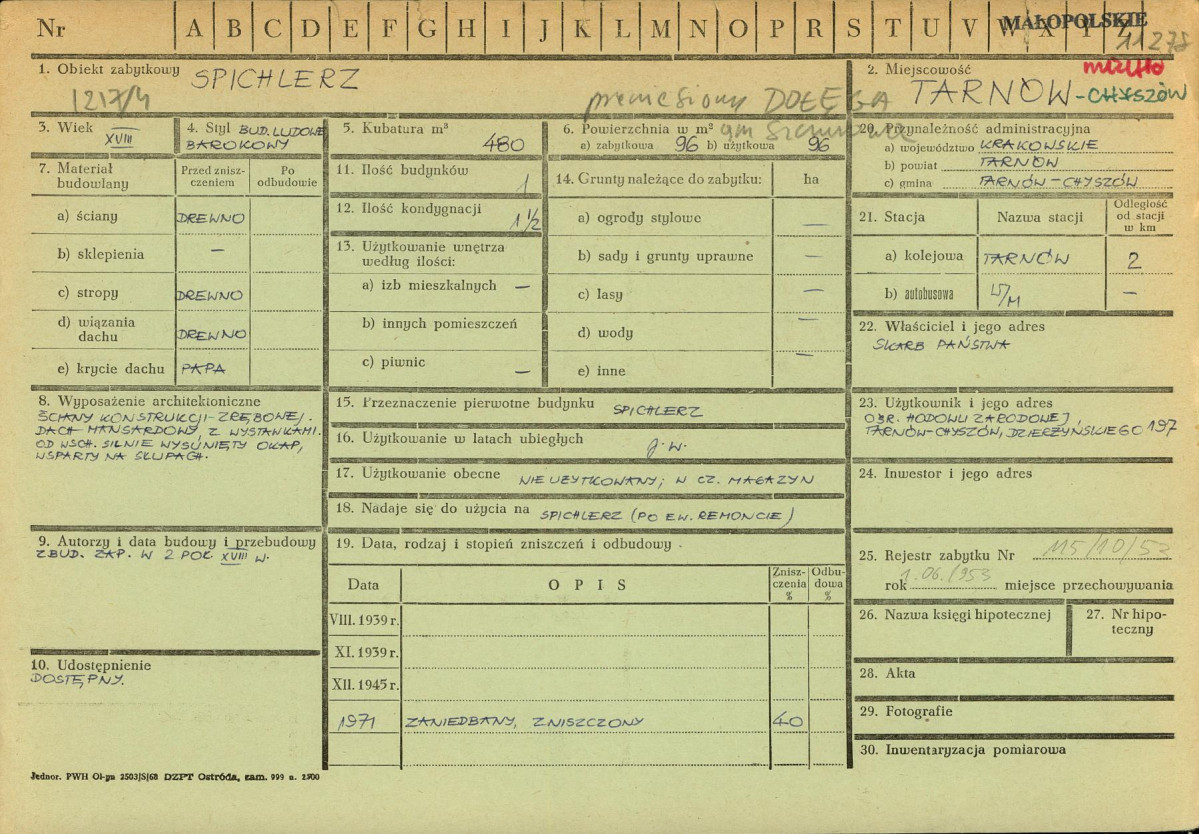 Nr A B C D E F G H I J K L M N O P R S T U V W X Y Z
MAŁOPOLSKIE
11278
1. Obiekt zabytkowy SPICHLERZ
1217/4
przeniesiony DOŁĘGA
gm Szczurowa
2. Miejscowość
TARNÓW-CHYSZÓW
3. Wiek XVIII
4. Styl BUD. LUDOWE
BAROKOWY
5. Kubatura m³
480
6. Powierzchnia w m²
a) zabytkowa 96 b) użytkowa 96
7. Materiał budowlany
Przed zniszczeniem
Po odbudowie
a) ściany DREWNO
b) sklepienia –
c) stropy DREWNO
d) wiązania dachu DREWNO
e) krycie dachu PAPA
8. Wyposażenie architektoniczne
ŚCIANY KONSTRUKCJI ZRĘBOWEJ.
DACH MANSARDOWY, Z WYSTAWKAMI.
OD WSCH. SILNIE WYSUNIĘTY OKAP,
WSPARTY NA SŁUPACH.
9. Autorzy i data budowy i przebudowy
ZBUD. ZAP. W 2 POŁ. XVIII W.
10. Udostępnienie
DOSTĘPNY.
11. Ilość budynków 1
12. Ilość kondygnacji 1 ½
13. Użytkowanie wnętrza
według ilości:
a) izb mieszkalnych –
b) innych pomieszczeń
c) piwnic –
14. Grunty należące do zabytku: ha
a) ogrody stylowe –
b) sady i grunty uprawne –
c) lasy –
d) wody –
e) inne –
15. Przeznaczenie pierwotne budynku SPICHLERZ
16. Użytkowanie w latach ubiegłych j. w.
17. Użytkowanie obecne NIE UŻYTKOWANY; W CZ. MAGAZYN
18. Nadaje się do użycia na SPICHLERZ (PO EW. REMONCIE)
19. Data, rodzaj i stopień zniszczeń i odbudowy
Data OPIS Zniszczenia % Odbudowa %
VIII. 1939 r.
XI. 1939 r.
XII. 1945 r.
1971 ZANIEDBANY, ZNISZCZONY 40
20. Przynależność administracyjna
a) województwo KRAKOWSKIE
b) powiat TARNÓW
c) gmina TARNÓW-CHYSZÓW
21. Stacja Nazwa stacji Odległość od stacji w km
a) kolejowa TARNÓW 2
b) autobusowa W/M –
22. Właściciel i jego adres
SKARB PAŃSTWA
23. Użytkownik i jego adres
OŚR. HODOWLI ZARODOWEJ
TARNÓW-CHYSZÓW, DZIERŻYŃSKIEGO 197
24. Inwestor i jego adres
25. Rejestr zabytku Nr 115/10/53
rok 1.06.1953 miejsce przechowywania
26. Nazwa księgi hipotecznej
27. Nr hipoteczny
28. Akta
29. Fotografie
30. Inwentaryzacja pomiarowa
Jednor. PWH Ol-pn 2503/S/68 DZPT Ostróda, zam. 999 n. 2500